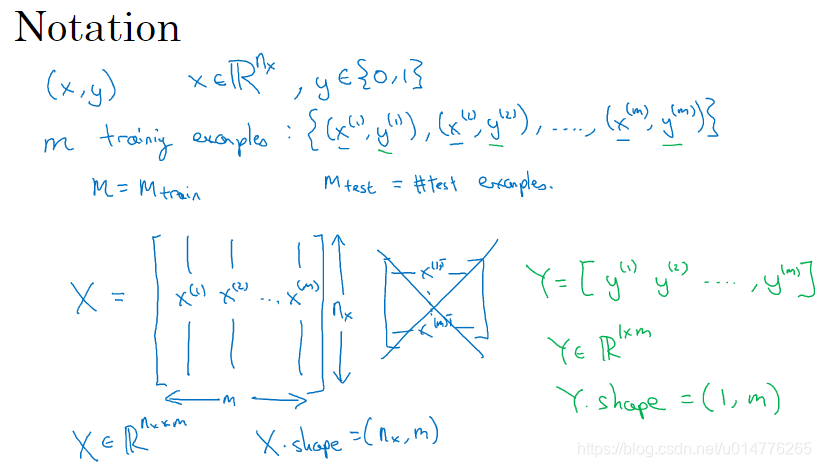 Notation
(x, y)  x ∈ ℝ^{n_x}, y ∈ {0,1}
m trainiy examples : {(x^{(1)}, y^{(1)}), (x^{(2)}, y^{(2)}), ...., (x^{(m)}, y^{(m)})}
M = M_{train}  M_{test} = #test examples.
X = [ x^{(1)} x^{(2)} ... x^{(m)} ]
n_x
m
x^{(1)T}
x^{(m)T}
Y = [ y^{(1)} y^{(2)} ...., y^{(m)} ]
Y ∈ ℝ^{1×m}
Y.shape = (1, m)
X ∈ ℝ^{n_x×m}  X.shape = (n_x, m)
https://blog.csdn.net/u014776265